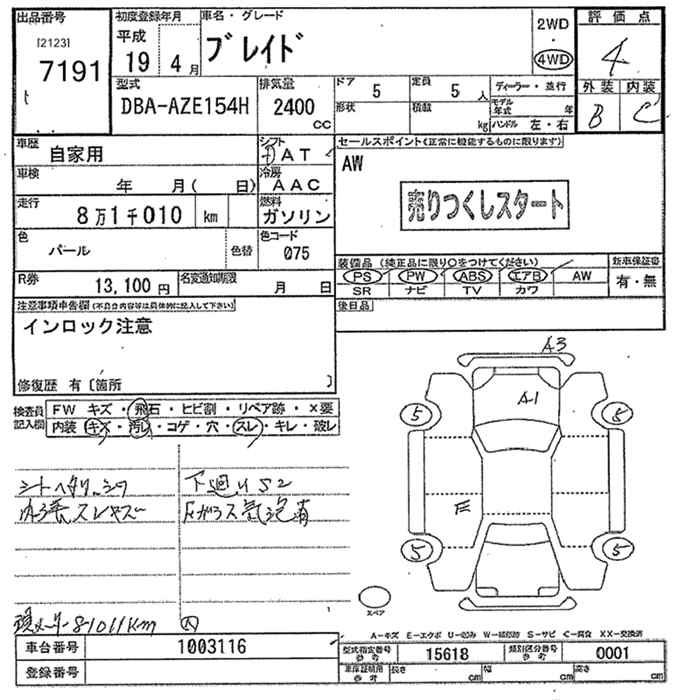 出品番号 初度登録年月 車名・グレード 2WD 評価点
[2123] 平成 ブレイド 4WD 4
7191 19 4月 外装 内装
型式 排気量 ドア 5 定員 5人 ディーラー・並行 B C
DBA-AZE154H 2400 cc 形状 積載 kg モデル年式 年 ハンドル 左・右
車歴 自家用 シフト AT セールスポイント(正常に機能するものに限ります)
車検 年 月( 日) 冷房 AAC AW
走行 8万1千010 km 燃料 ガソリン 売りつくしスタート
色 パール 色替 色コード 075
装備品(純正品に限り○をつけてください) 新車保証書
R券 13,100円 名変通知期限 月 日 PS PW ABS エアB AW 有・無
SR ナビ TV カワ
注意事項申告欄(不具合内容等は具体的に記入して下さい) 後日品
インロック注意
修復歴 有〔箇所 〕
A3
A1
検査員記入欄 FW キズ・飛石・ヒビ割・リペア跡・X要
内装 キズ・汚レ・コゲ・穴・スレ・キレ・破レ
5 5
シートヘタリ、シワ 下廻りS2
内張スレキズ Fガラス気泡有
E
5 5
スペア
現メーター81011Km
A-キズ E-エクボ U-凹み W-補修跡 S-サビ C-腐食 XX-交換済
車台番号 1003116 型式指定番号 参考 15618 類別区分番号 参考 0001
登録番号 車庫証明用 参考 長さ cm 幅 cm 高さ cm